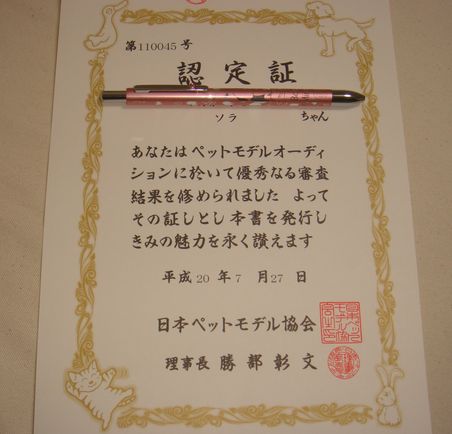 第110045号
認定証
ソラ ちゃん
あなたはペットモデルオーディ
ションに於いて優秀なる審査
結果を修められました よって
その証しとし本書を発行し
きみの魅力を永く讃えます
平成20年7月27日
日本ペットモデル協会
理事長 勝部彰文